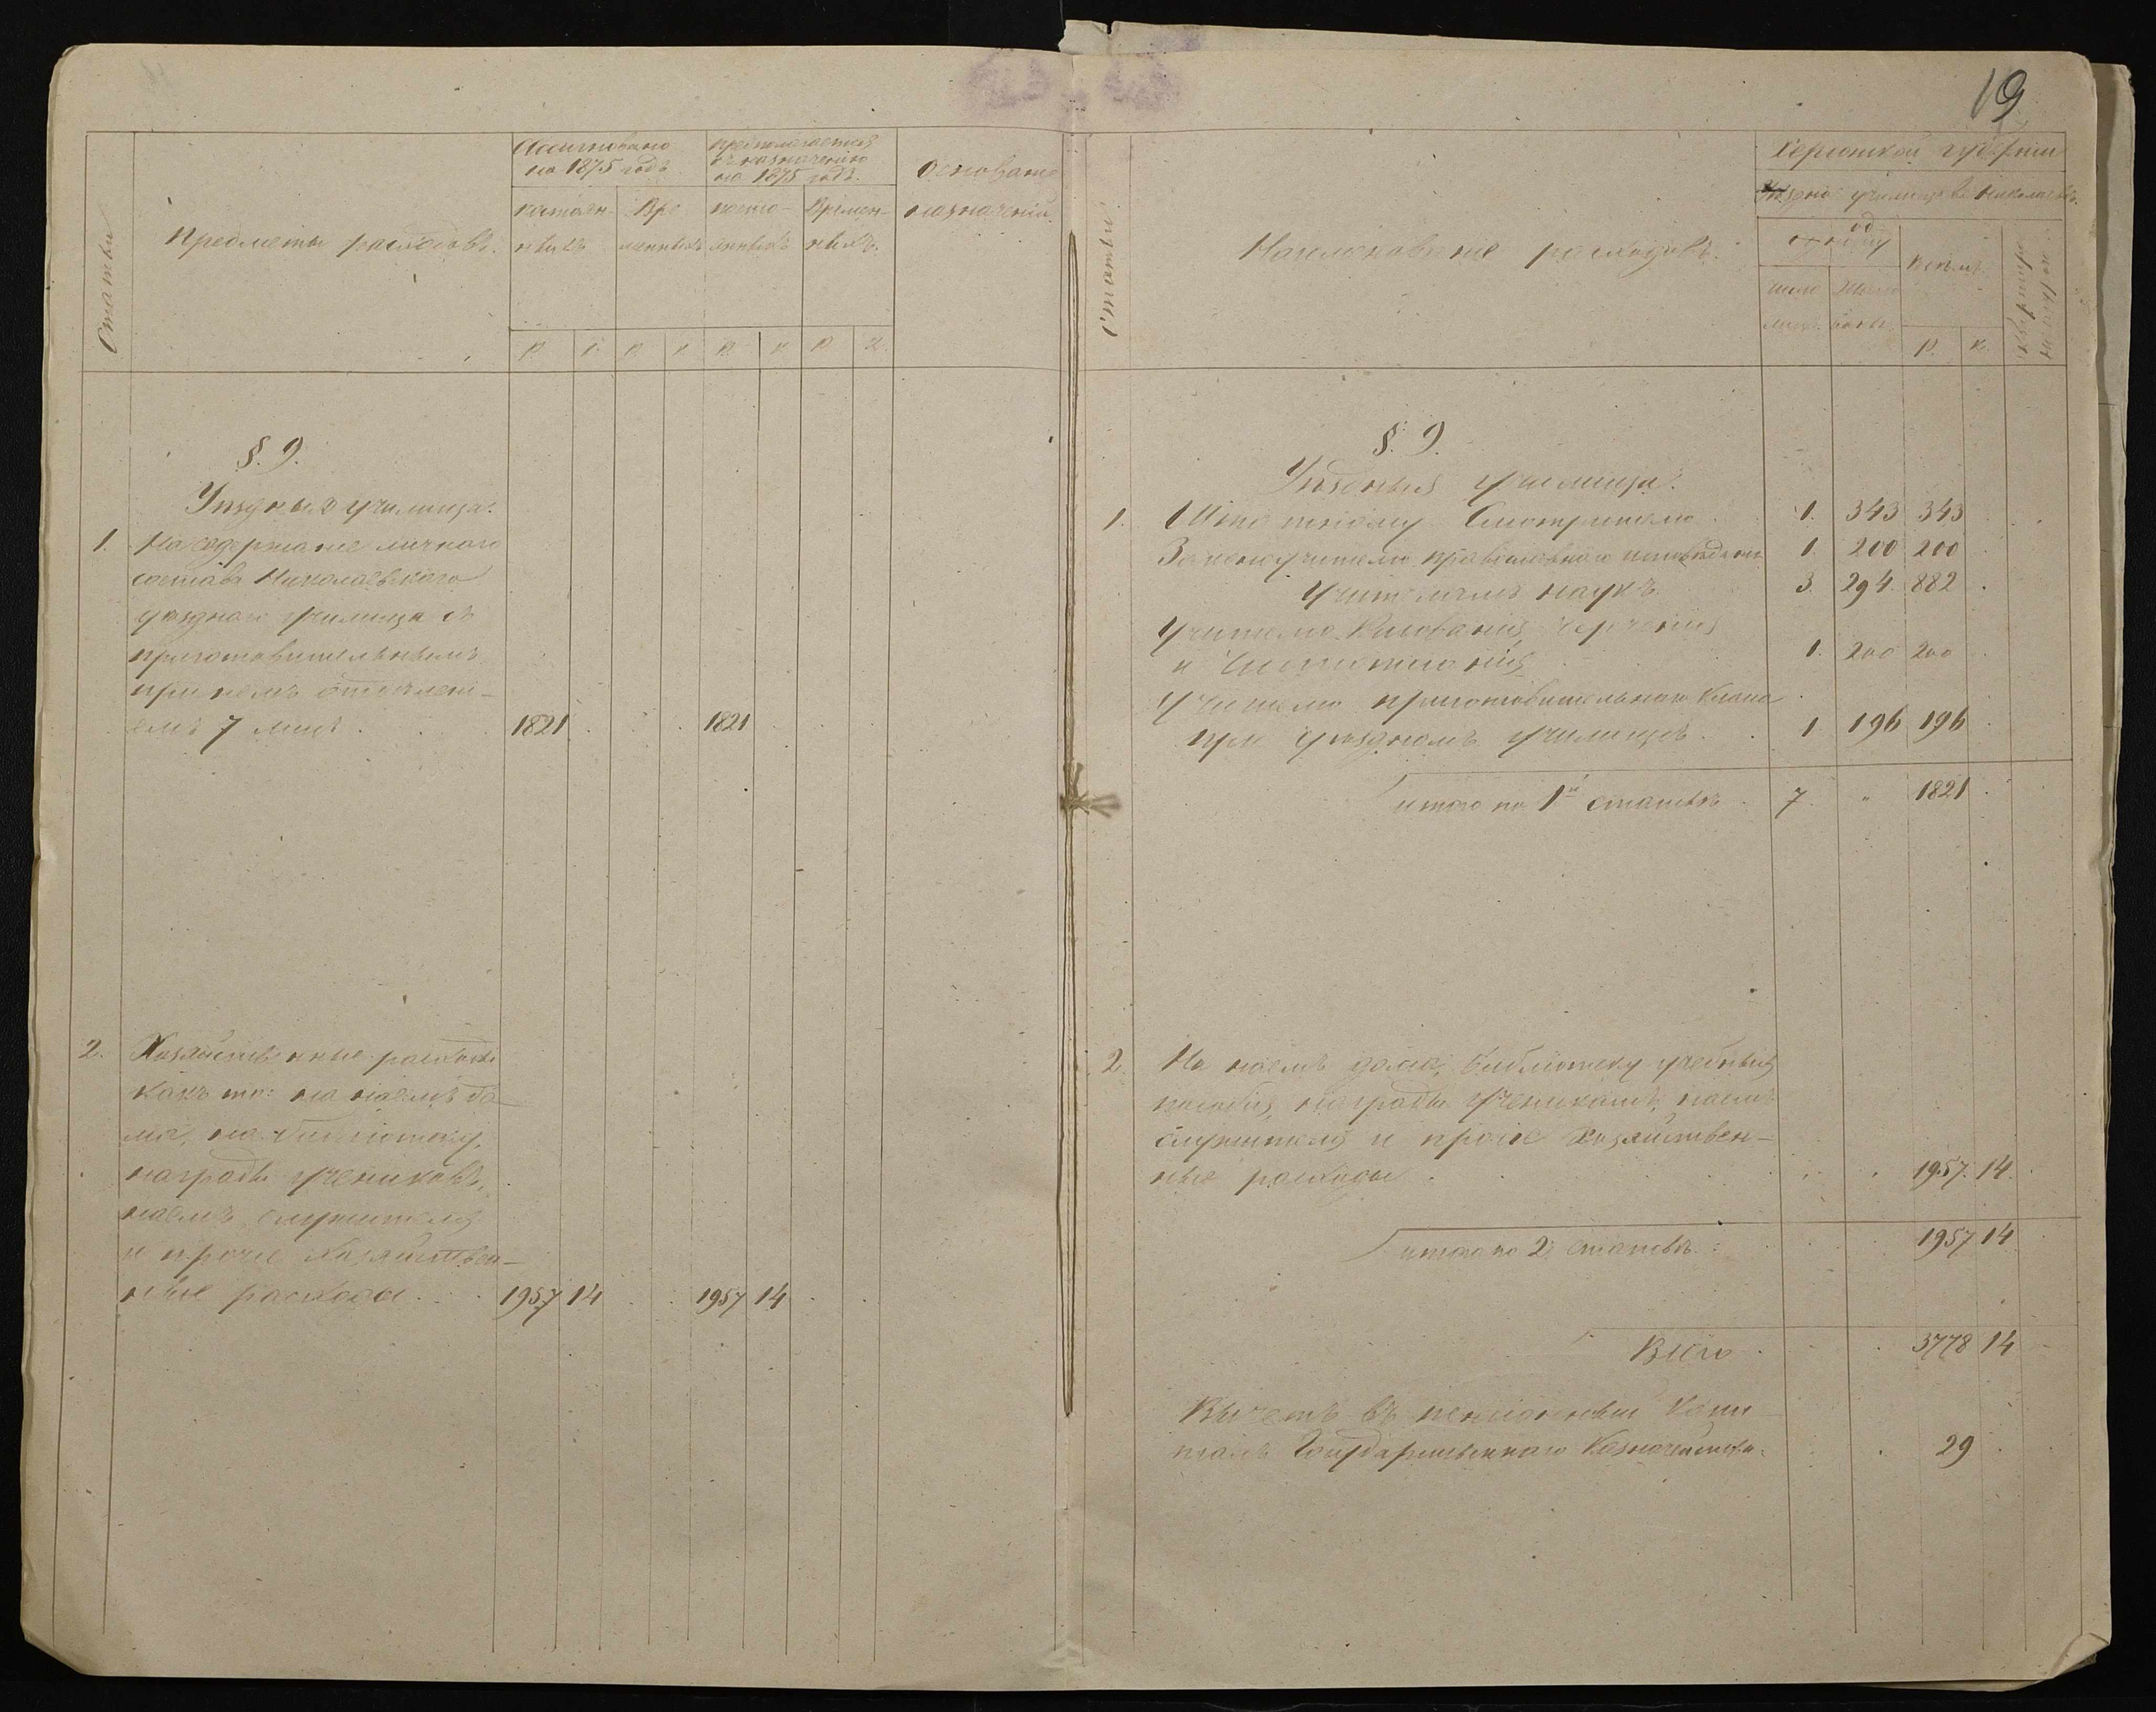 19
Статьи
Предметы расходовъ.
Ассигновано
на 1875 годъ
постоян-
ныхъ
Вре
менныхъ
предполагается
къ назначенію
на 1875 годъ.
посто-
янныхъ
Времен-
ныхъ.
Основаніе
назначенія.
Р. К. Р. К. Р. К. Р. К.
§. 9.
Уѣздныя училища.
1. На содержаніе личнаго
состава Николаевскаго
уѣзднаго училища съ
приготовительнымъ
при немъ отдѣлені-
емъ 7 лицъ . . 1821 . . . 1821 . . .
2. Хозяйственные расходы
какъ то: на наемъ до-
ма, на библіотеку,
награды учениковъ,
наемъ служителя
и прочіе хозяйствен-
ные расходы . . . 1957 14 . . 1957 14 . .
Статьи.
Наименованіе расходовъ.
Херсонской губерніи
Уѣздное училище въ Николаевѣ.
одному
число
лицъ.
Жало
ванье.
Всѣмъ.
Р. К.
§. 9.
Уѣздныя училища.
1. Штатному Смотрителю . 1. 343 343
Законоучителю православнаго исповѣданія 1. 200 200
Учителямъ наукъ 3. 294. 882 .
Учителю Рисованія, черченія
и Чистописанія 1. 200 200
Учителю приготовительнаго класса
при уѣздномъ училищѣ. . 1 196 196
итого по 1й статьѣ . 7. " 1821 .
2. На наемъ дома, библіотеку учебныя
пособія, награды ученикамъ, наемъ
служителя и прочіе хозяйствен-
ные расходы . . . 1957. 14.
итого по 2й статьѣ. . . 1957 14
Всего . . . 3778 14
Вычетъ въ пенсіонный капи
талъ Государственнаго Казначейства. . 29 .